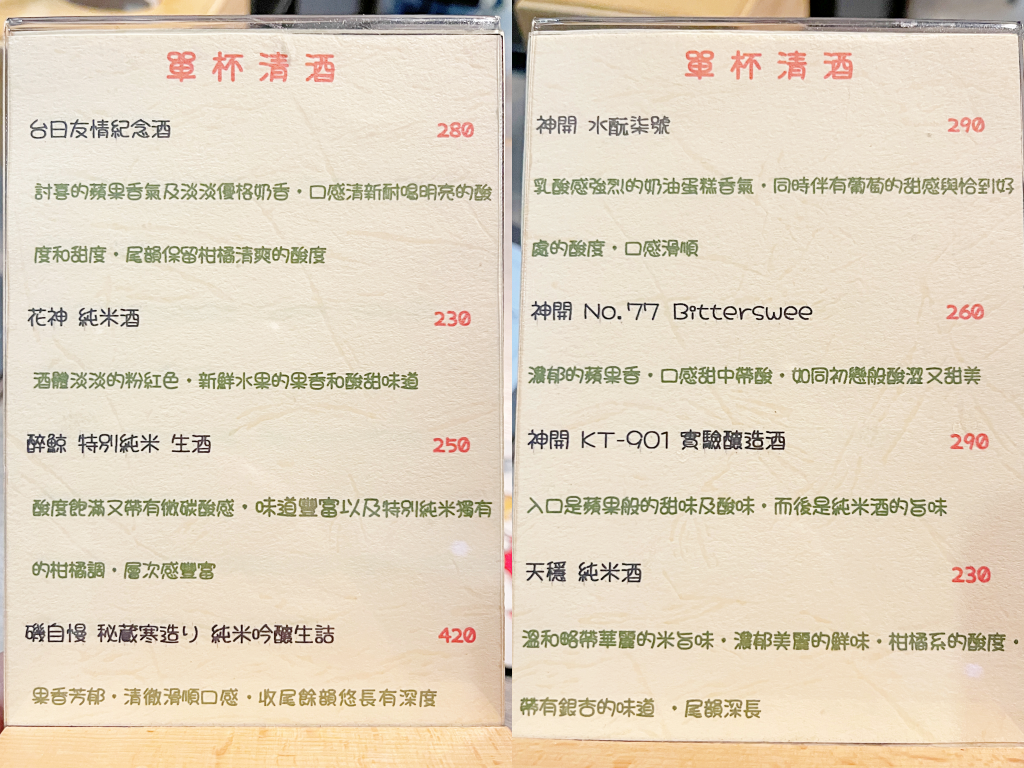 單杯清酒
台日友情紀念酒 280
討喜的蘋果香氣及淡淡優格奶香・口感清新耐喝明亮的酸
度和甜度・尾韻保留柑橘清爽的酸度
花神 純米酒 230
酒體淡淡的粉紅色・新鮮水果的果香和酸甜味道
醉鯨 特別純米 生酒 250
酸度飽滿又帶有微碳酸感・味道豐富以及特別純米獨有
的柑橘調・層次感豐富
磯自慢 秘蔵寒造り 純米吟釀生詰 420
果香芳郁・清徹滑順口感・收尾餘韻悠長有深度
單杯清酒
神開 水酛柒號 290
乳酸感強烈的奶油蛋糕香氣・同時伴有葡萄的甜感與恰到好
處的酸度・口感滑順
神開 No.77 Bitterswee 260
濃郁的蘋果香・口感甜中帶酸・如同初戀般酸澀又甜美
神開 KT-901 實驗釀造酒 290
入口是蘋果般的甜味及酸味・而後是純米酒的旨味
天穩 純米酒 230
溫和略帶華麗的米旨味・濃郁美麗的鮮味・柑橘系的酸度・
帶有銀杏的味道 ・尾韻深長